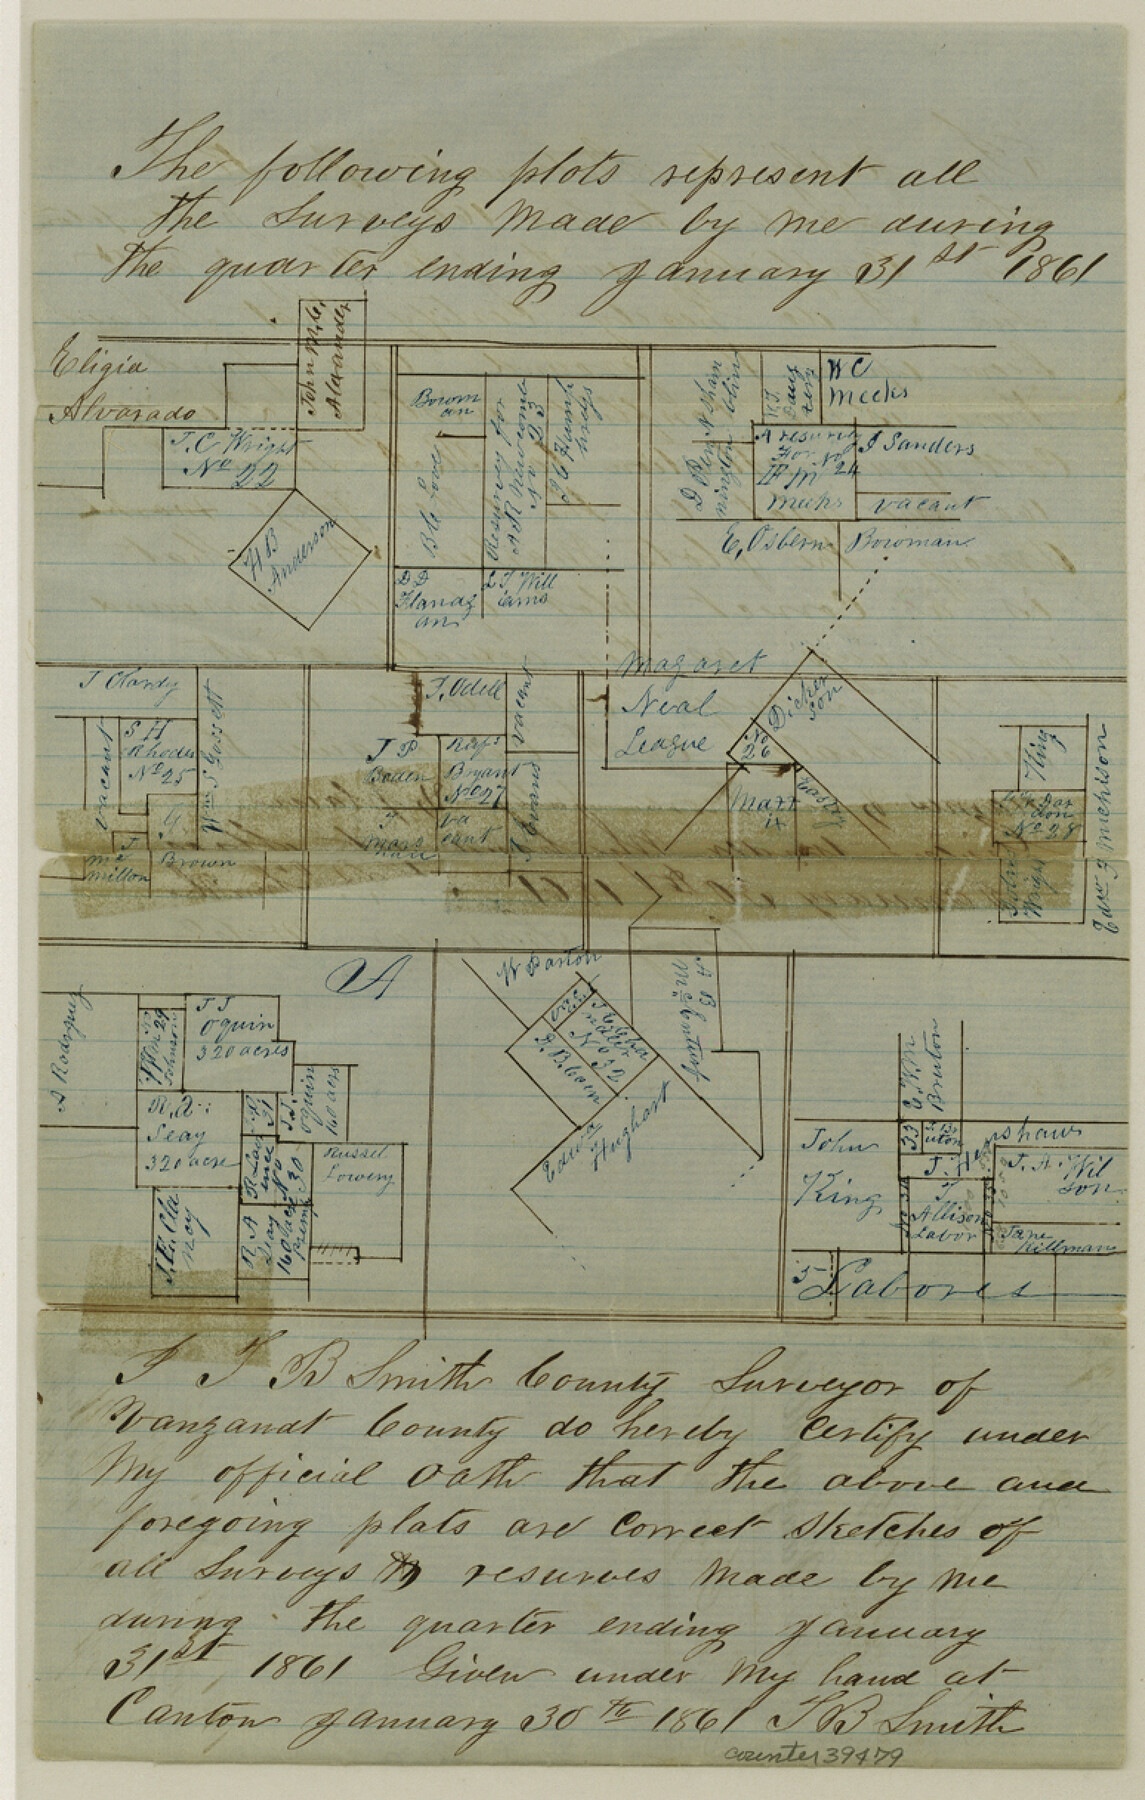 The following plots represent all
the Surveys made by me during
the quarter ending January 31st 1861
Eligia
Alvarado
John M. C.
Alexander
J. C. Wright
No 22
H B
Anderson
Bowm
an
B C Love
Resurvey for
A R Newcomb
No 23
J C Humph
hreys
D D
Flanag
an
L J Will
iams
D Pen
nington
N Sham
blin
W C
Meeks
A resurvey
For
No 24
Meeks
J Sanders
vacant
E, Osbern
Bowman
J Clardy
vacant
S H
Rhodes
No 25
Wm S Gossett
G.
Brown
J
mc
millon
J, Odell
vacant
J P
Boden
Rafs
Bryant
No 27
va
cant
J
A Evans
Magaret
Neal
League
Dicker
son
No
26
Mart
it
East
King
No 28
John
Wright
Edw J Michison
A
A Rodriguez
No 29
Johnson
J J
Oguin
320 acres
R. A.
Seay
320 acre
31
J J.
Oguin
160 acrs
No 30
Russel
Lowery
J. E. Cla
ncy
R A
Seay
160 acr
Prem
W Parton
vac
J E Cha
ndler
No 32
D. B. Coen
Edwd
Hughart
A B
McEntuff
E. W. M
Bruton
33
John
King
J. Hershaw
J. A. Wil
son
J.
Allison
Labor
Jane
Killman
5 Labores
I J B Smith County Surveyor of
Vanzandt County do hereby Certify under
My official Oath that the above and
foregoing plats are Correct Sketches of
all Surveys resurves made by me
during the quarter ending January
31st 1861 Given under My hand at
Canton January 30th 1861 J B Smith
counter 39479